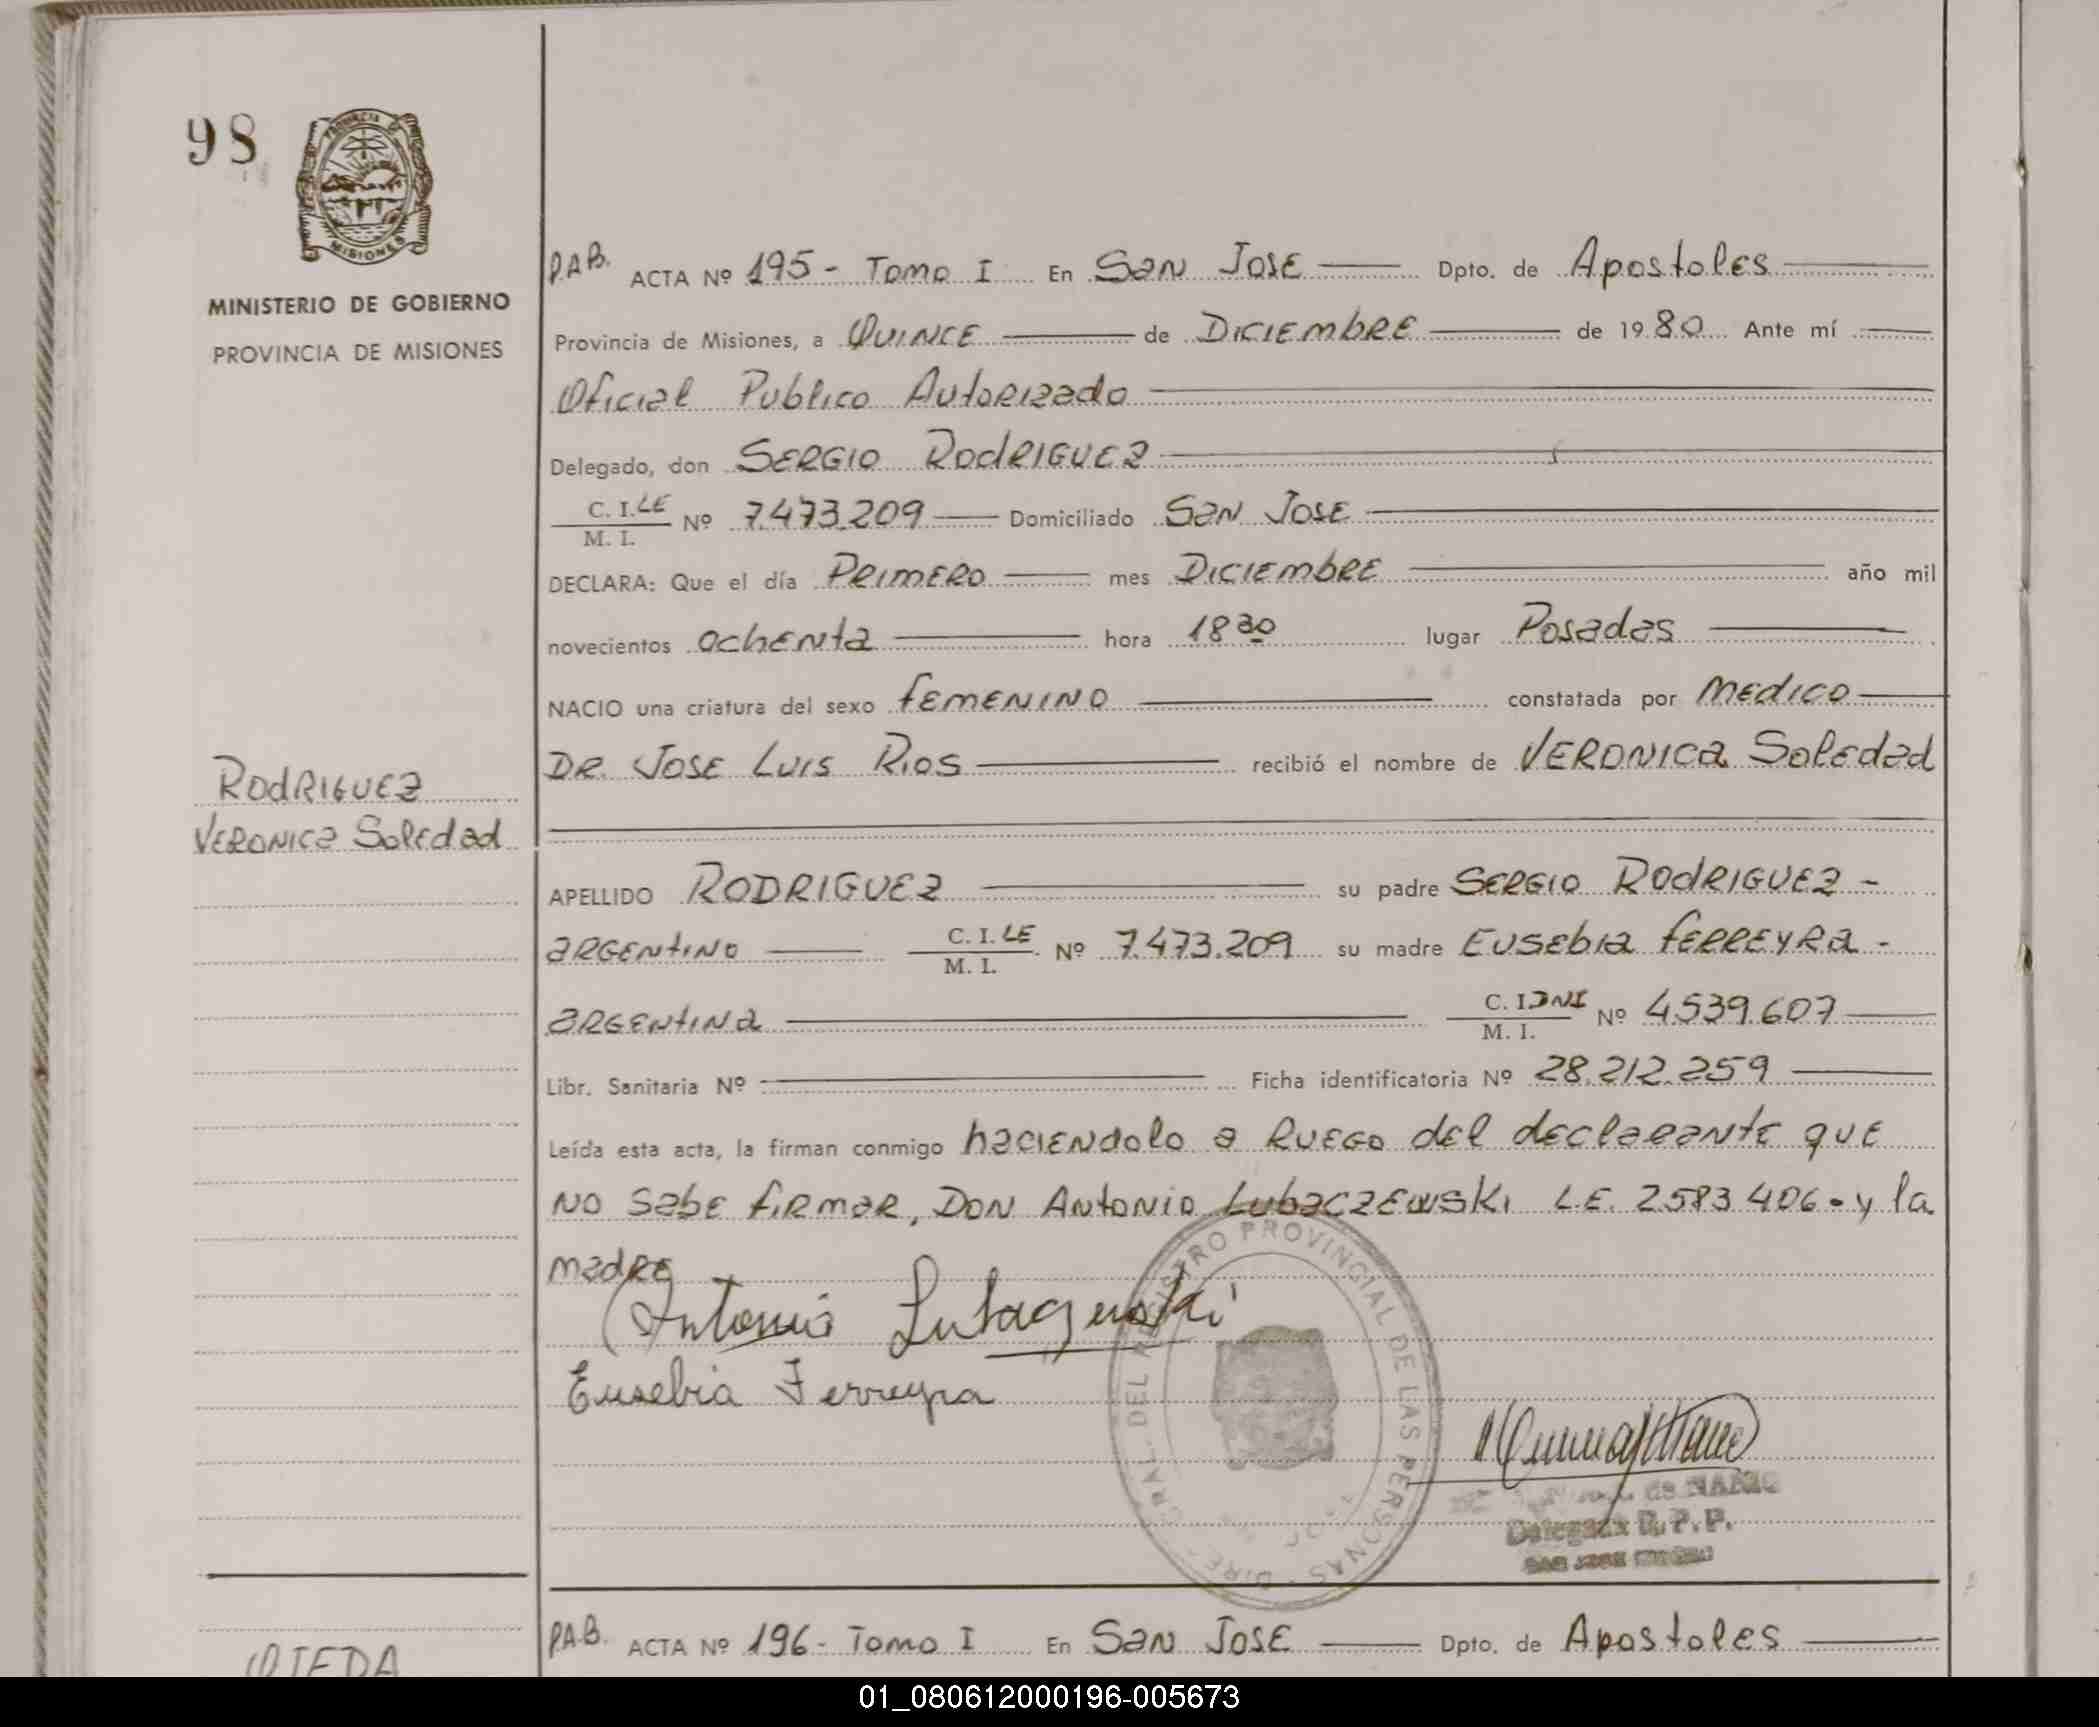 98
PROVINCIA DE
MISIONES
MINISTERIO DE GOBIERNO
PROVINCIA DE MISIONES
RODRIGUEZ
VERONICA Soledad
P.A.B. ACTA Nº 195 - Tomo I En San Jose Dpto. de Apostoles
Provincia de Misiones, a QUINCE de DICIEMBRE de 1980 Ante mí
Oficial Publico Autorizado
Delegado, don SERGIO RODRIGUEZ
C. I. LE
M. I. Nº 7.473.209 Domiciliado San Jose
DECLARA: Que el día PRIMERO mes DICIEMBRE año mil
novecientos ochenta hora 18 30 lugar Posadas
NACIO una criatura del sexo FEMENINO constatada por Medico
DR. JOSE LUIS RIOS recibió el nombre de VERONICA Soledad
APELLIDO RODRIGUEZ su padre SERGIO RODRIGUEZ -
ARGENTINO C. I. LE
M. I. Nº 7.473.209 su madre EUSEBIA FERREYRA -
ARGENTINA C. I. DNI
M. I. Nº 4.539.607
Libr. Sanitaria Nº Ficha identificatoria Nº 28.212.259
Leída esta acta, la firman conmigo haciendolo a ruego del declarante que
no sabe firmar, Don Antonio Lubaczewski L.E. 2583406 - y la
madre
Antonio Lubaczewski
Eusebia Ferreyra
DEL REGISTRO PROVINCIAL DE LAS PERSONAS
de
Delegada R. P. P.
SAN JOSE
P.A.B. ACTA Nº 196 - Tomo I En San Jose Dpto. de Apostoles
OJEDA
01_080612000196-005673